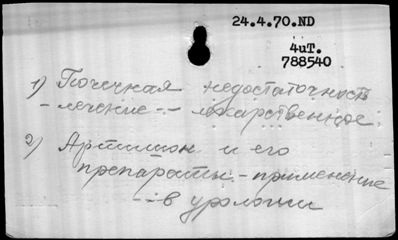 24.4.70.ND
4иТ.
788540
1) Почечная недостаточность
- лечение -- лекарственное
2) Артишок и его
препараты - применение
-- в урологии